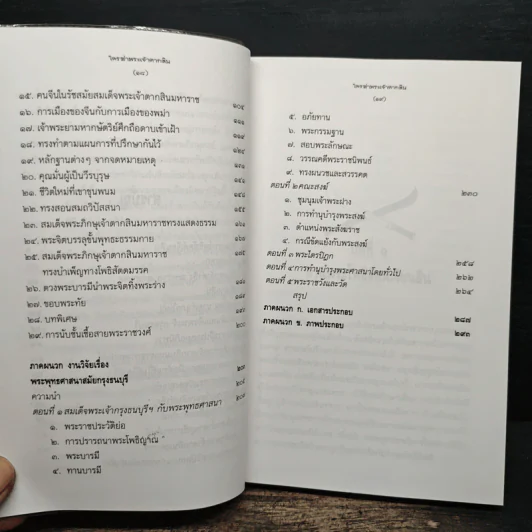 ใครฆ่าพระเจ้าตากสิน
(๑๘)
๑๕. คนจีนในรัชสมัยสมเด็จพระเจ้าตากสินมหาราช ๑๐๔
๑๖. การเมืองของจีนกับการเมืองของพม่า
๑๗. เจ้าพระยามหากษัตริย์ศึกถือดาบเข้าเฝ้า
๑๘. ทรงทำตามแผนการที่ปรึกษากันไว้
๑๙. หลักฐานต่างๆ จากจดหมายเหตุ
๒๐. คุณมั่นผู้เป็นวีรบุรุษ
๒๑. ชีวิตใหม่ที่เขาขุนพนม
๒๒. ทรงสอนสมถวิปัสสนา
๒๓. สมเด็จพระภิกษุเจ้าตากสินมหาราชทรงแสดงธรรม
๒๔. พระจิตบรรลุขั้นพุทธะธรรมกาย
๒๕. สมเด็จพระภิกษุเจ้าตากสินมหาราช
ทรงบำเพ็ญทางโพธิสัตตมรรค
๒๖. ดวงพระบารมีนำพระจิตทิ้งพระร่าง
๒๗. ขอบพระทัย
๒๘. บทพิเศษ
๒๙. การนับชั้นเชื้อสายพระราชวงศ์
ภาคผนวก งานวิจัยเรื่อง
พระพุทธศาสนาสมัยกรุงธนบุรี
ความนำ
ตอนที่ ๑ สมเด็จพระเจ้ากรุงธนบุรีฯ กับพระพุทธศาสนา
๑. พระราชประวัติย่อ
๒. การปรารถนาพระโพธิญาณ
๓. พระบารมี
๔. ทานบารมี
ใครฆ่าพระเจ้าตากสิน
(๑๙)
๕. อภัยทาน
๖. พระกรรมฐาน
๗. สอบพระลักษณะ
๘. วรรณคดีพระราชนิพนธ์
๙. ทรงมนวชและสวรรคต
ตอนที่ ๒ คณะสงฆ์ ๒๓๐
๑. ชุมนุมเจ้าพระฝาง
๒. การทำนุบำรุงพระสงฆ์
๓. ตำแหน่งพระสังฆราช
๔. กรณีขัดแย้งกับพระสงฆ์
ตอนที่ ๓ พระไตรปิฎก ๒๕๘
ตอนที่ ๔ การทำนุบำรุงพระศาสนาโดยทั่วไป ๒๖๒
ตอนที่ ๕ พระราชวังและวัด ๒๖๔
สรุป
ภาคผนวก ก. เอกสารประกอบ ๒๘๗
ภาคผนวก ข. ภาพประกอบ ๒๙๓